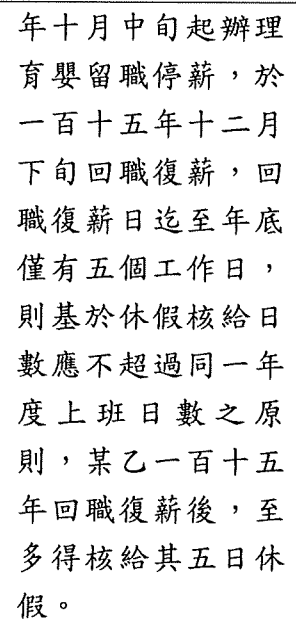 年十月中旬起辦理
育嬰留職停薪，於
一百十五年十二月
下旬回職復薪，回
職復薪日迄至年底
僅有五個工作日，
則基於休假核給日
數應不超過同一年
度上班日數之原
則，某乙一百十五
年回職復薪後，至
多得核給其五日休
假。